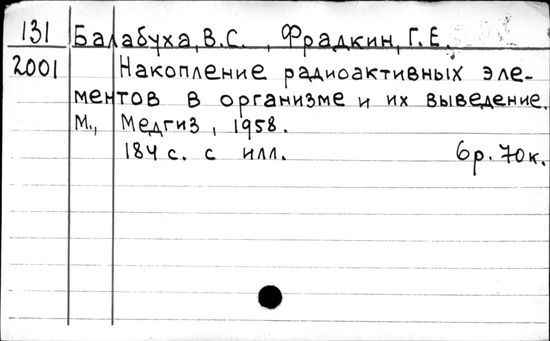 131 Балабуха, В.С., Фрадкин, Г.Е.
2001 Накопление радиоактивных эле-
ментов в организме и их выведение.
М., Медгиз, 1958.
184 с. с илл. 6р. 70к.